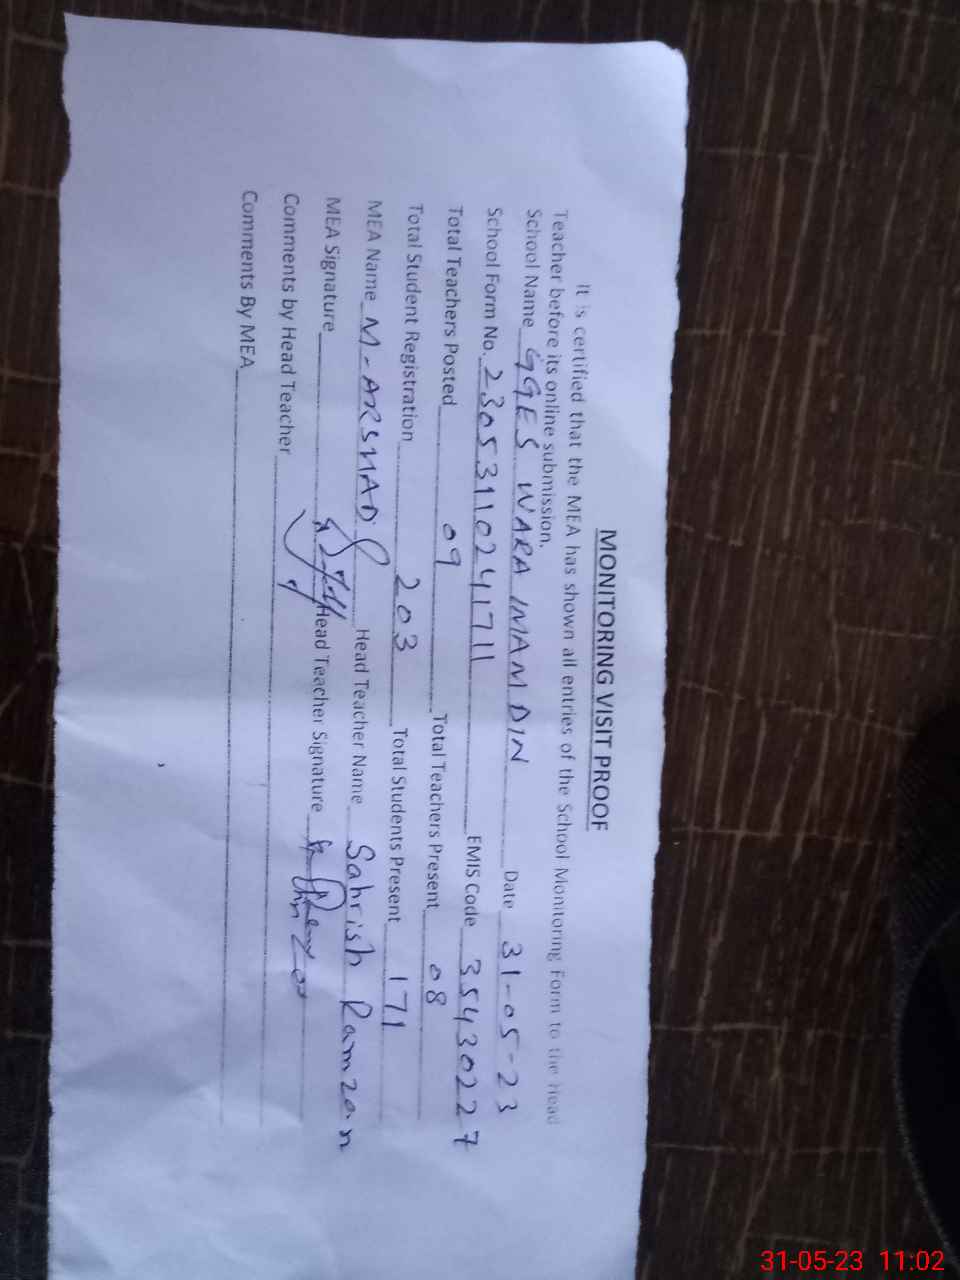 MONITORING VISIT PROOF
It is certified that the MEA has shown all entries of the School Monitoring Form to the Head
Teacher before its online submission.
School Name GGES WARA IMAM DIN Date 31-05-23
School Form No. 2305311024171 EMIS Code 35430227
Total Teachers Posted 09 Total Teachers Present 08
Total Student Registration 203 Total Students Present 171
MEA Name M-ARSHAD Head Teacher Name Sahrish Ramzan
MEA Signature Head Teacher Signature
Comments by Head Teacher
Comments By MEA
31-05-23 11:02